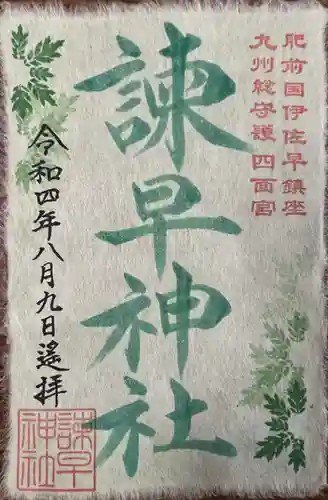 肥前国伊佐早鎮座
九州総守護四面宮
諫早神社
令和四年八月九日遙拝
諫早
神社